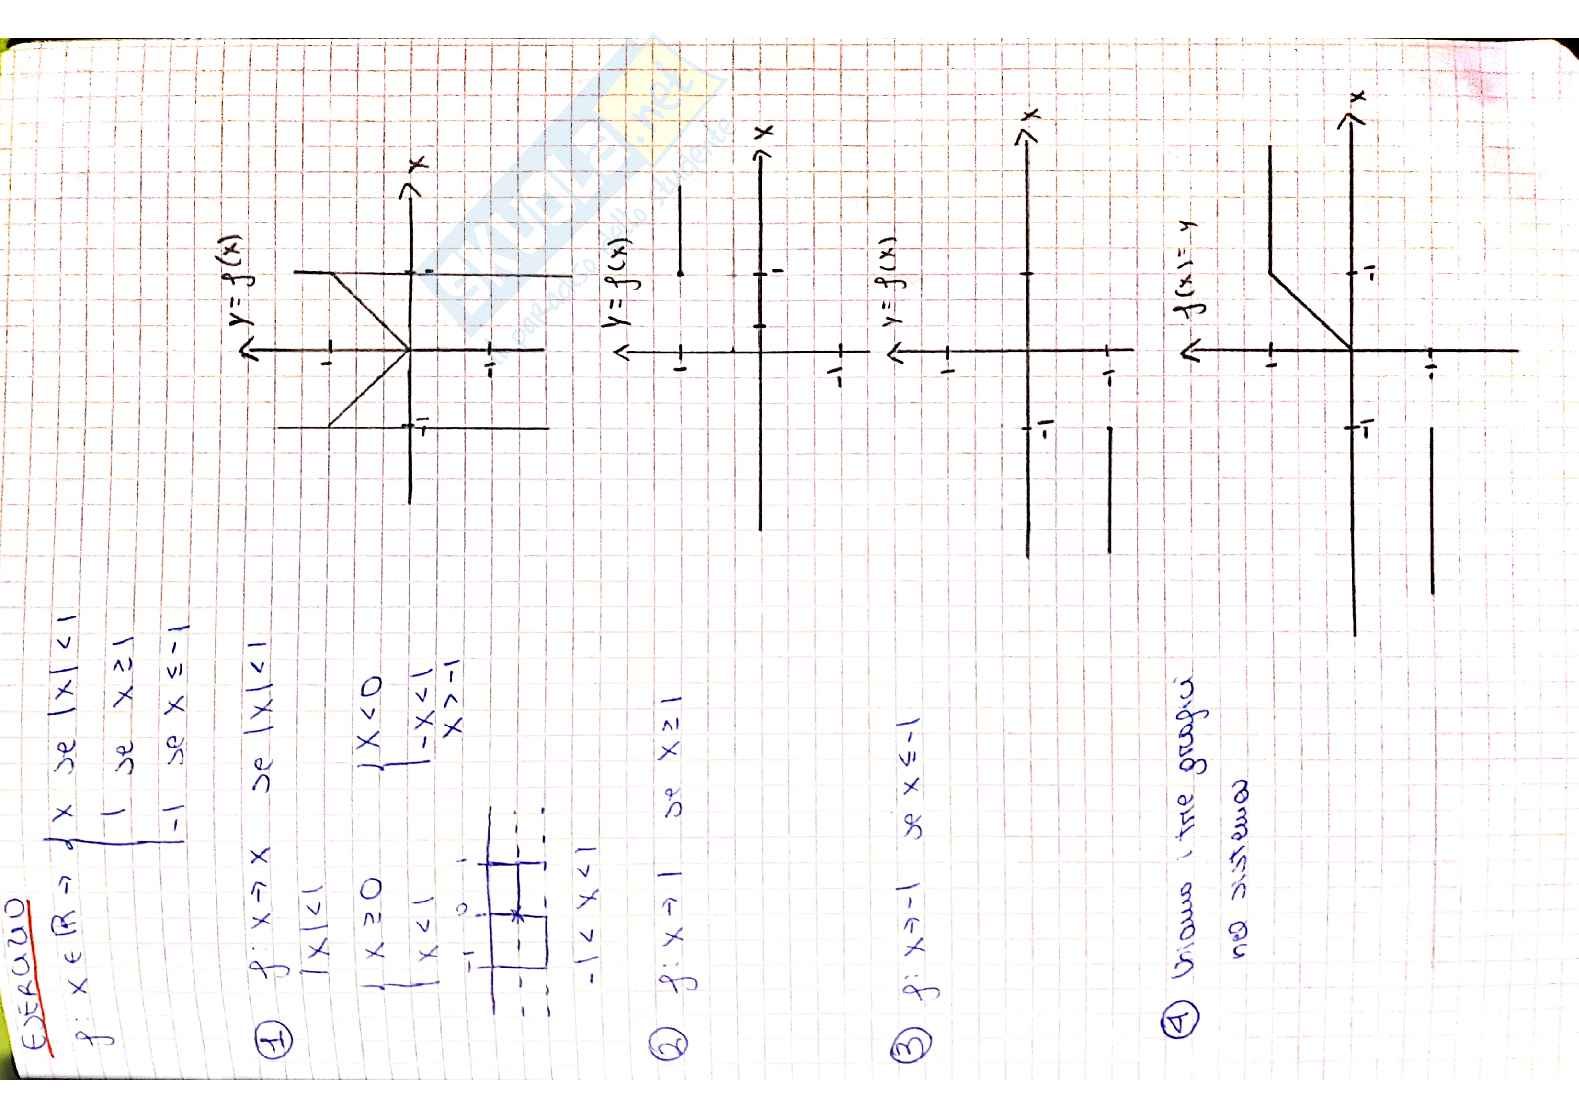 ESERCIZIO
f: x ∈ ℝ → { x se |x| < 1
1 se x ≥ 1
-1 se x ≤ -1
① f: x → x se |x| < 1
|x| < 1
{ x ≥ 0 { x < 0
{ x < 1 { -x < 1
x > -1
-1 0 1
-1 < x < 1
y = f(x)
x
1
-1
-1
1
② f: x → 1 se x ≥ 1
y = f(x)
x
1
-1
1
③ f: x → -1 se x ≤ -1
y = f(x)
x
1
-1
-1
④ Uniamo i tre grafici
nel sistema
f(x) = y
x
1
-1
-1
-1
SKUOLA.net
il paradiso dello studente